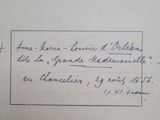 Anne-Marie-Louise d'Orléans
dite la "Grande Mademoiselle"
au Chancelier, 29 août 1656.